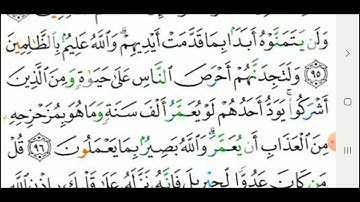 وَلَن يَتَمَنَّوْهُ أَبَدًۢا بِمَا قَدَّمَتْ أَيْدِيهِمْ ۗ وَٱللَّهُ عَلِيمٌۢ بِٱلظَّٰلِمِينَ
٩٥ وَلَتَجِدَنَّهُمْ أَحْرَصَ ٱلنَّاسِ عَلَىٰ حَيَوٰةٍ وَمِنَ ٱلَّذِينَ
أَشْرَكُوا۟ ۚ يَوَدُّ أَحَدُهُمْ لَوْ يُعَمَّرُ أَلْفَ سَنَةٍ وَمَا هُوَ بِمُزَحْزِحِهِۦ
مِنَ ٱلْعَذَابِ أَن يُعَمَّرَ ۗ وَٱللَّهُ بَصِيرٌۢ بِمَا يَعْمَلُونَ ٩٦ قُلْ
مَن كَانَ عَدُوًّا لِّجِبْرِيلَ فَإِنَّهُۥ نَزَّلَهُۥ عَلَىٰ قَلْبِكَ بِإِذْنِ ٱللَّهِ